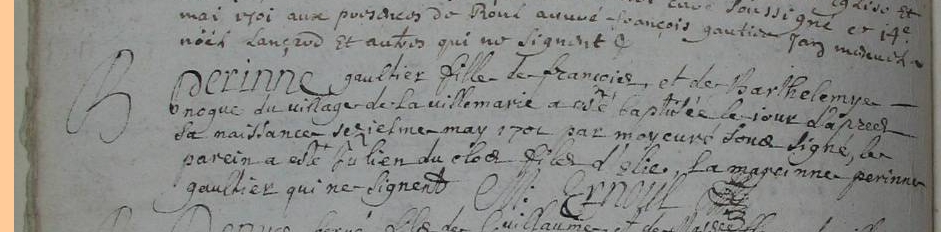 Eglise et
mai 1701 aux presences de Roul françois gaultier Jan
nöel Lançod Et autres qui ne signent
B perinne gaultier fille de françois et de Barthelemye
noque du village de La villemarie a esté baptisée le jour dapres
sa naissance seziesme may 1701 par moy curé sous signé, le
parein a esté Julien du clos fils d'olie. La mareinne perinne
gaultier qui ne signent M. Ernoul
fils de Guillaume et de